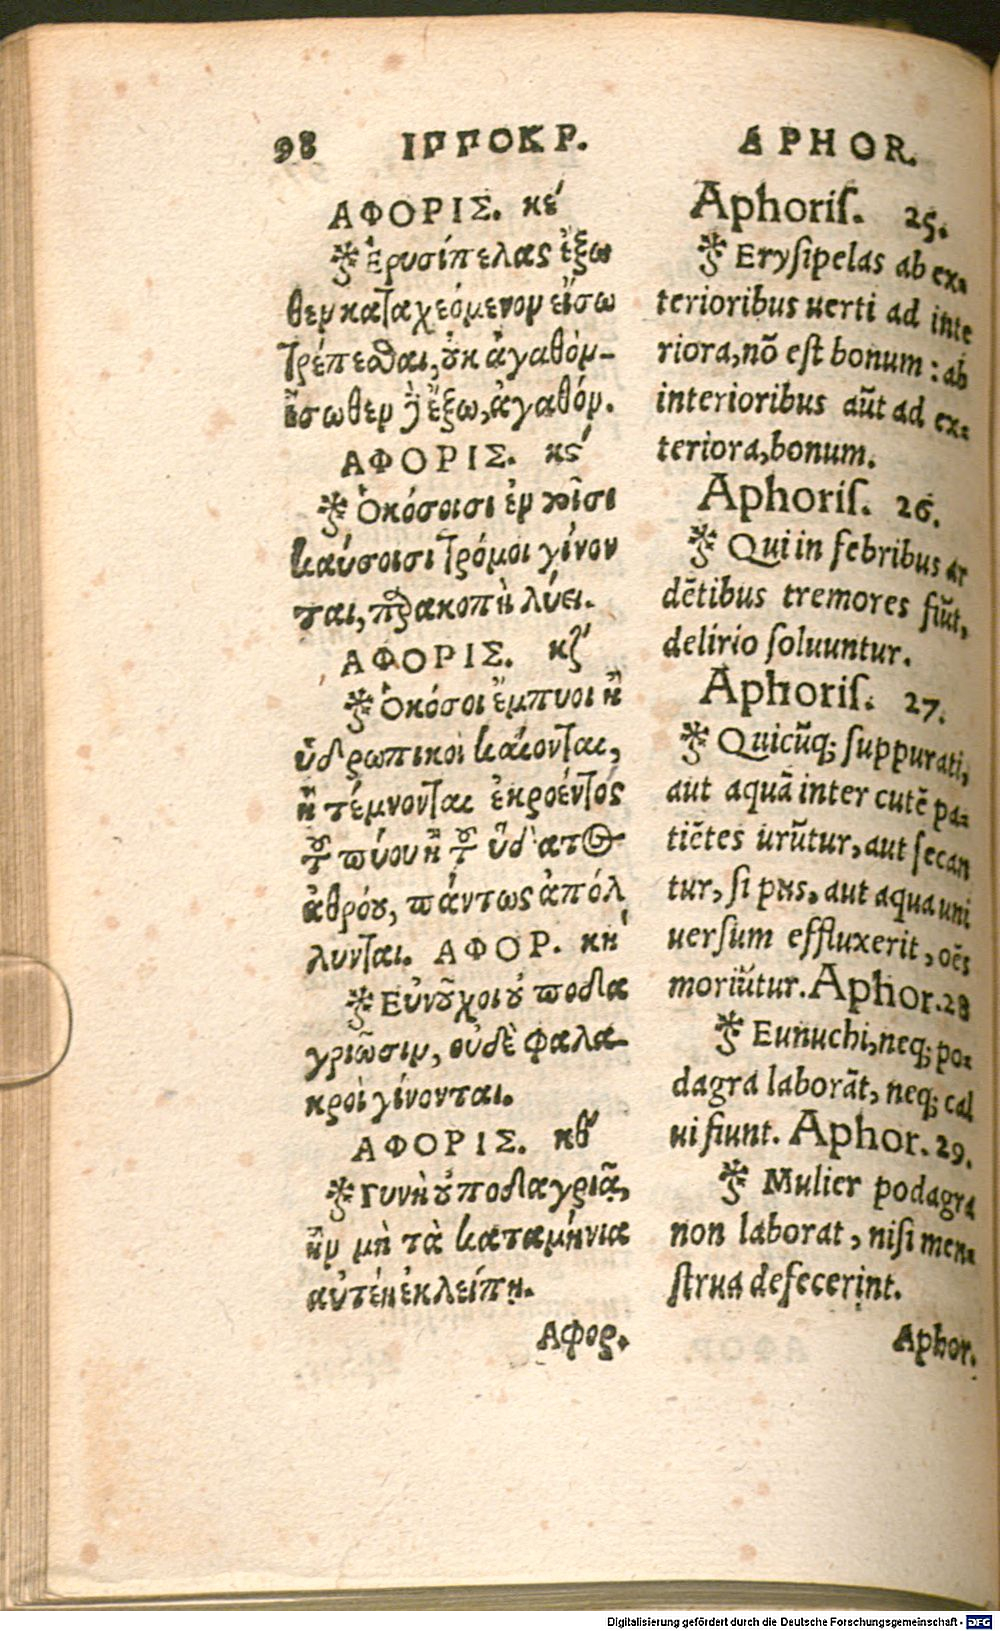 98 ΙΠΠΟΚΡ.
ΑΦΟΡΙΣ. κέ
Ἐρυσίπελας ἔξω
θεν καταχεόμενον εἴσω
τρέπεσθαι, ὀυκ ἀγαθόν–
ἔσωθεν ἢ ἔξω, ἀγαθόν.
ΑΦΟΡΙΣ. κϛ́
Ὁκόσοισι ἐν τοῖσι
καύσοισι τρόμοι γίνον
ται, παρακοπὴ λύει.
ΑΦΟΡΙΣ. κζ́
Ὁκόσοι ἔμπυοι ἢ
ὑδρωπικοὶ καίονται,
ἢ τέμνονται ἐκροέντος
τοῦ πύου ἢ τοῦ ὕδατος
ἀθρόου, πάντως ἀπόλ
λυνται. ΑΦΟΡ. κή
Εὐνοῦχοι ὀυ ποδα
γριῶσιν, οὐδὲ φαλα
κροὶ γίνονται.
ΑΦΟΡΙΣ. κθ́
Γυνὴ ὀυ ποδαγριᾷ,
ἢν μὴ τὰ καταμήνια
αὐτέῃ ἐκλείπῃ.
Αφορ.
APHOR.
Aphoriſ. 25.
Eryſipelas ab ex-
terioribus uerti ad inte
riora, nō eſt bonum : ab
interioribus aūt ad ex-
teriora, bonum.
Aphoriſ. 26.
Qui in febribus ar
dētibus tremores fiūt,
delirio ſoluuntur.
Aphoriſ. 27.
Quicūq; ſuppurati,
aut aquā inter cutē pa-
tiētes urūtur, aut ſecan
tur, ſi pus, aut aqua uni
uerſum effluxerit, oēs
moriūtur. Aphor. 28
Eunuchi, neq; po-
dagra laborāt, neq; cal
ui fiunt. Aphor. 29.
Mulier podagra
non laborat, niſi men-
ſtrua defecerint.
Aphor.
Digitalisierung gefördert durch die Deutsche Forschungsgemeinschaft - DFG